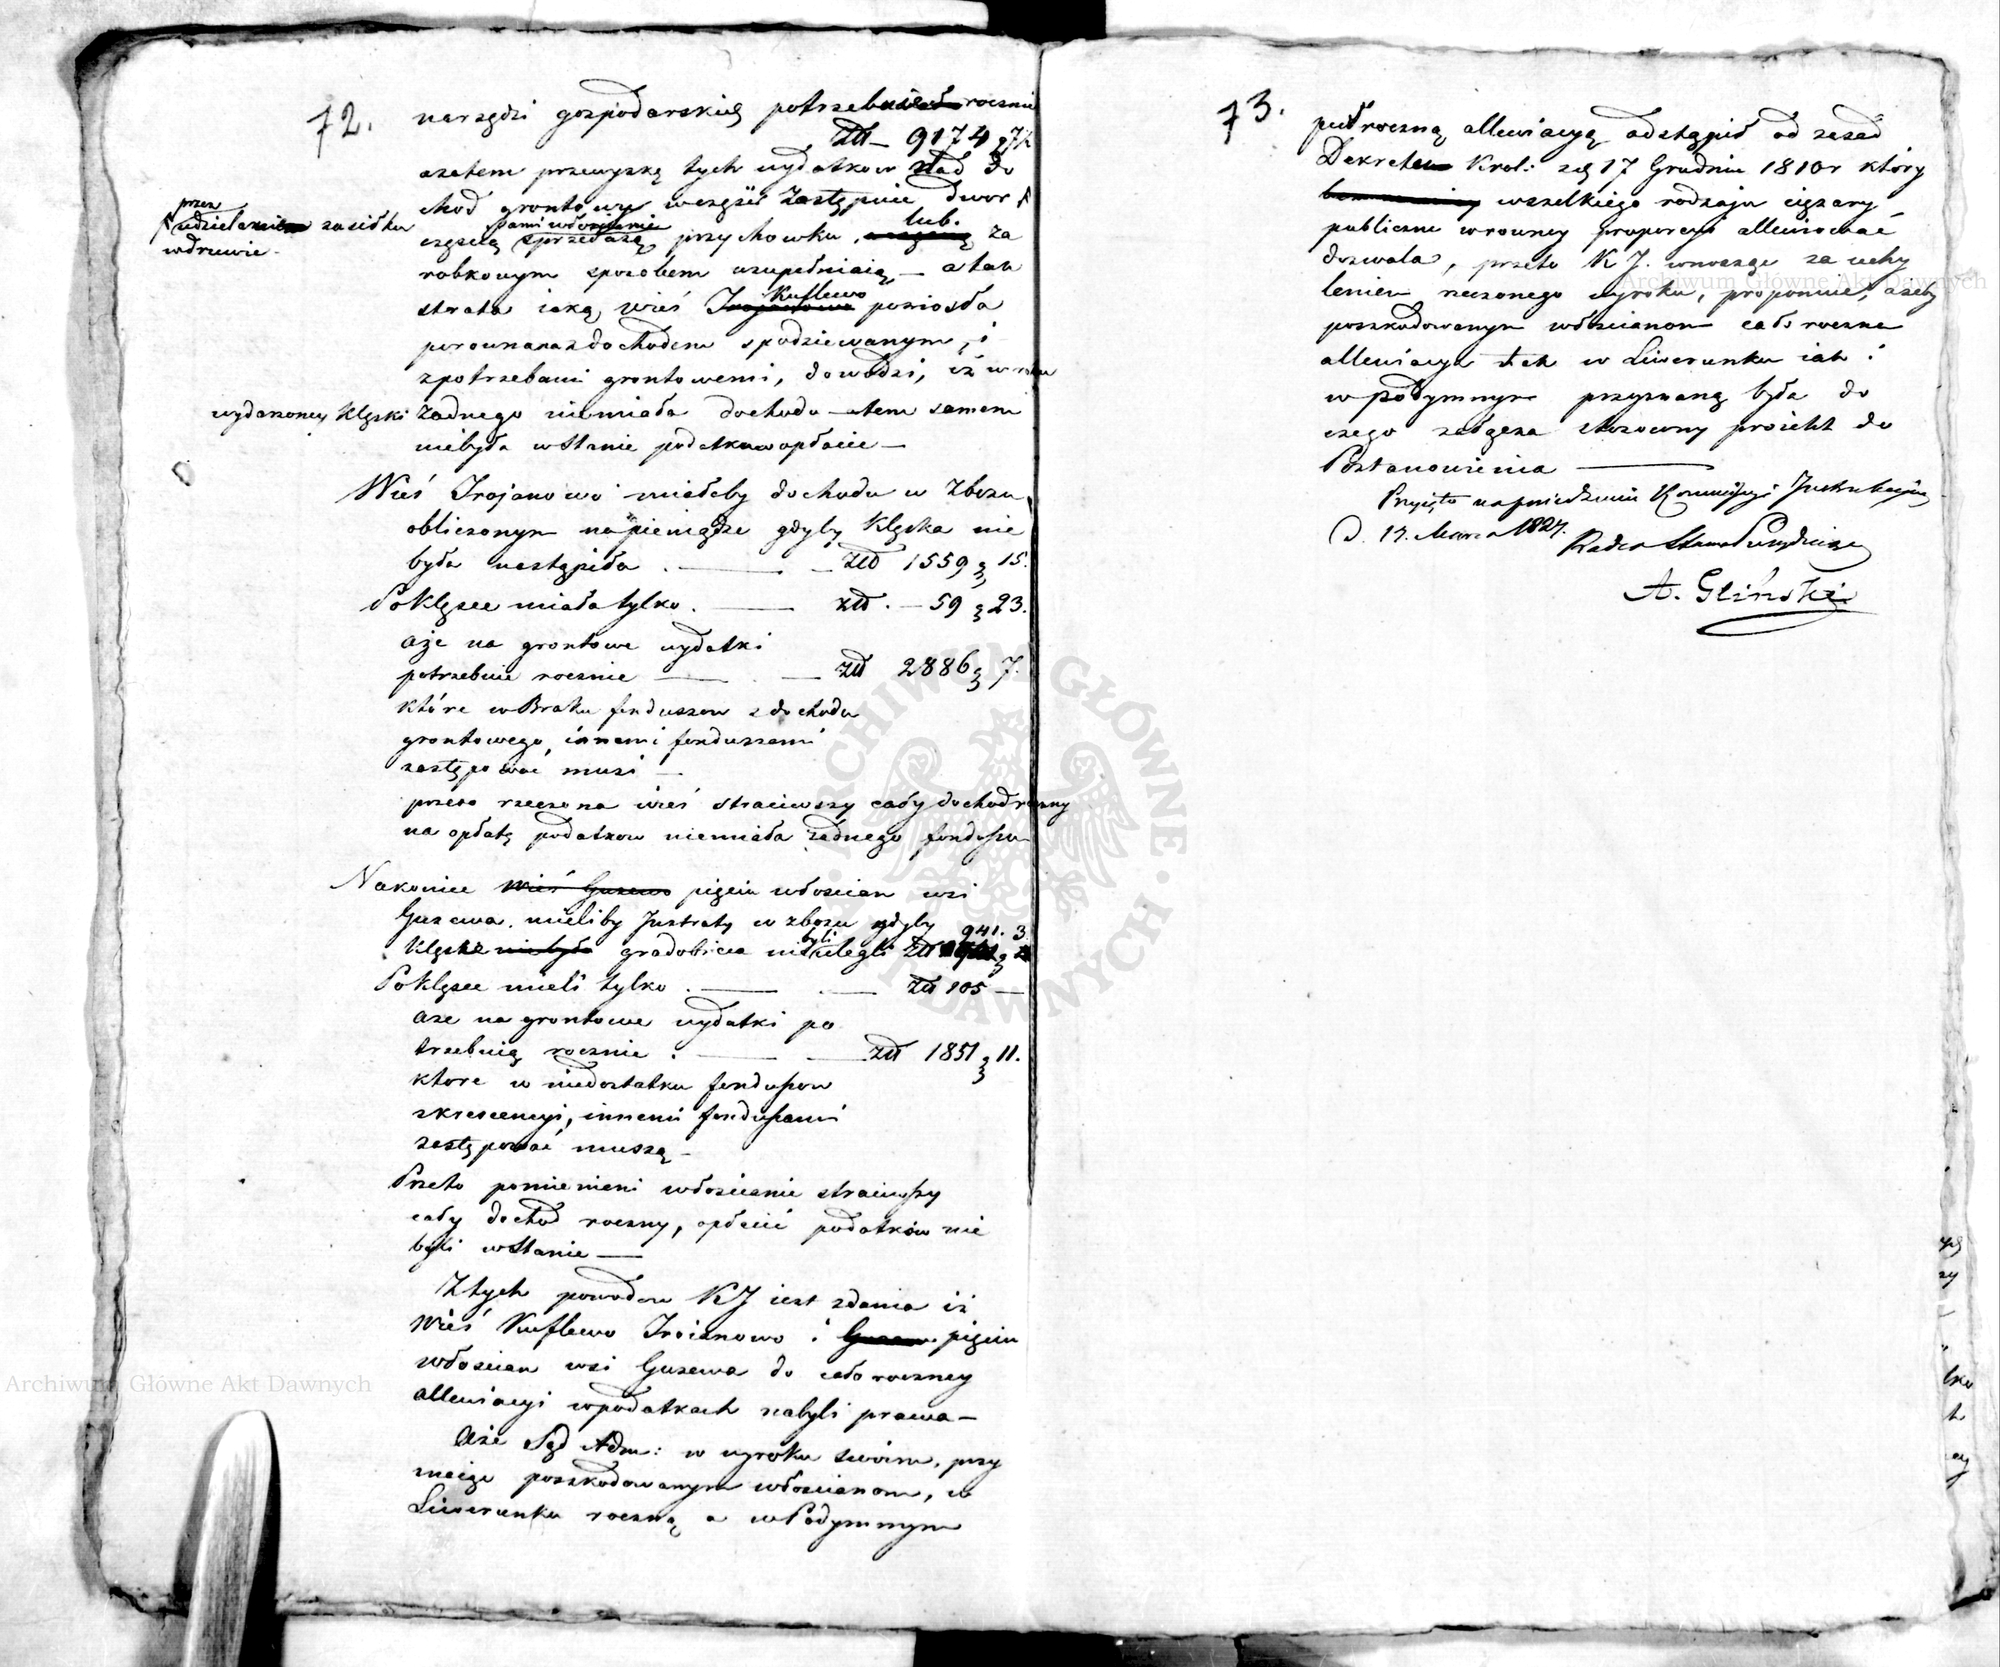 72.
narzędzi gospodarskich potrzebuie rocznie
zł – 9174 g 7½
azatem przewyżkę tych wydatkow nad do
chod grontowy w części zastępuie dwor
przez udzielanie zasiłku
w drzewie.
częścią sami włościanie sprzedażą przychowku, lub za
robkowym sposobem uzupełniaią – a tak
strata iaką wieś Kuflewo poniosła
porownana z dochodem spodziewanym, i
z potrzebami grontowemi, dowodzi, iż w roku
wydarzoney klęski żadnego niemiała dochodu – a tem samem
niebyła w stanie podatkow opłacić –
Wieś Trojanowo miałaby dochodu w zbożu
obliczonym na pieniądze gdyby klęska nie
była nastąpiła . – zł 1559 g 15.
Po klęsce miała tylko . – zł . – 59 g 23.
aże na grontowe wydatki
potrzebuie rocznie – zł 2886 g 7.
które w braku funduszow z dochodu
grontowego, innemi funduszami
zastępować musi –
przeto rzeczona wieś straciwszy cały dochod roczny
na opłatę podatkow niemiała żadnego funduszu
Nakoniec wieś Guzewo pięciu włościan wsi
Guzewa mieliby Intraty w zbożu gdyby
klęsce niebyła gradobicia niebyli ulegli zł 941. g 3.
Po klęsce mieli tylko . – zł 105 –
aże na grontowe wydatki po
trzebuią rocznie . – zł 1851 g 11.
ktore w niedostatku funduszow
z krescencyi, innemi funduszami
zastępować muszą –
Przeto pomienieni włościanie straciwszy
cały dochod roczny, opłacić podatków nie
byli w stanie –
Z tych powodow KJ iest zdania iż
Wieś Kuflewo Troianowo i pięciu
włościan wsi Guzewa do całoroczney
allewiacyi w podatkach nabyli prawa –
Aże Sąd Adm: w wyroku swoim, przy
znaiąc poszkodowanym włościanom, w
Liwerunku roczną a w Podymnym
73.
pułroczną allewiacyą odstąpił od zasad
Dekretu Krol: z d 17 Grudnia 1810 r który
wszelkiego rodzaju ciężary
publiczne w rowney proporcyi allewiować
dozwala, przeto KJ. wnosząc za uchy
leniem rzeczonego wyroku, proponuie, ażeby
poszkodowanym włościanom całoroczna
allewiacya tak w Liwerunku iak i
w podymnym przyznaną była do
czego załącza stosowny proiekt do
Postanowienia –
Przyięto na posiedzeniu Kommissyi Instrukcyiney
d. 17. Marca 1827.
Radca Stanu Prezyduiący
A. Gliński
Archiwum Główne Akt Dawnych
Archiwum Główne Akt Dawnych
ARCHIWUM GŁÓWNE AKT DAWNYCH